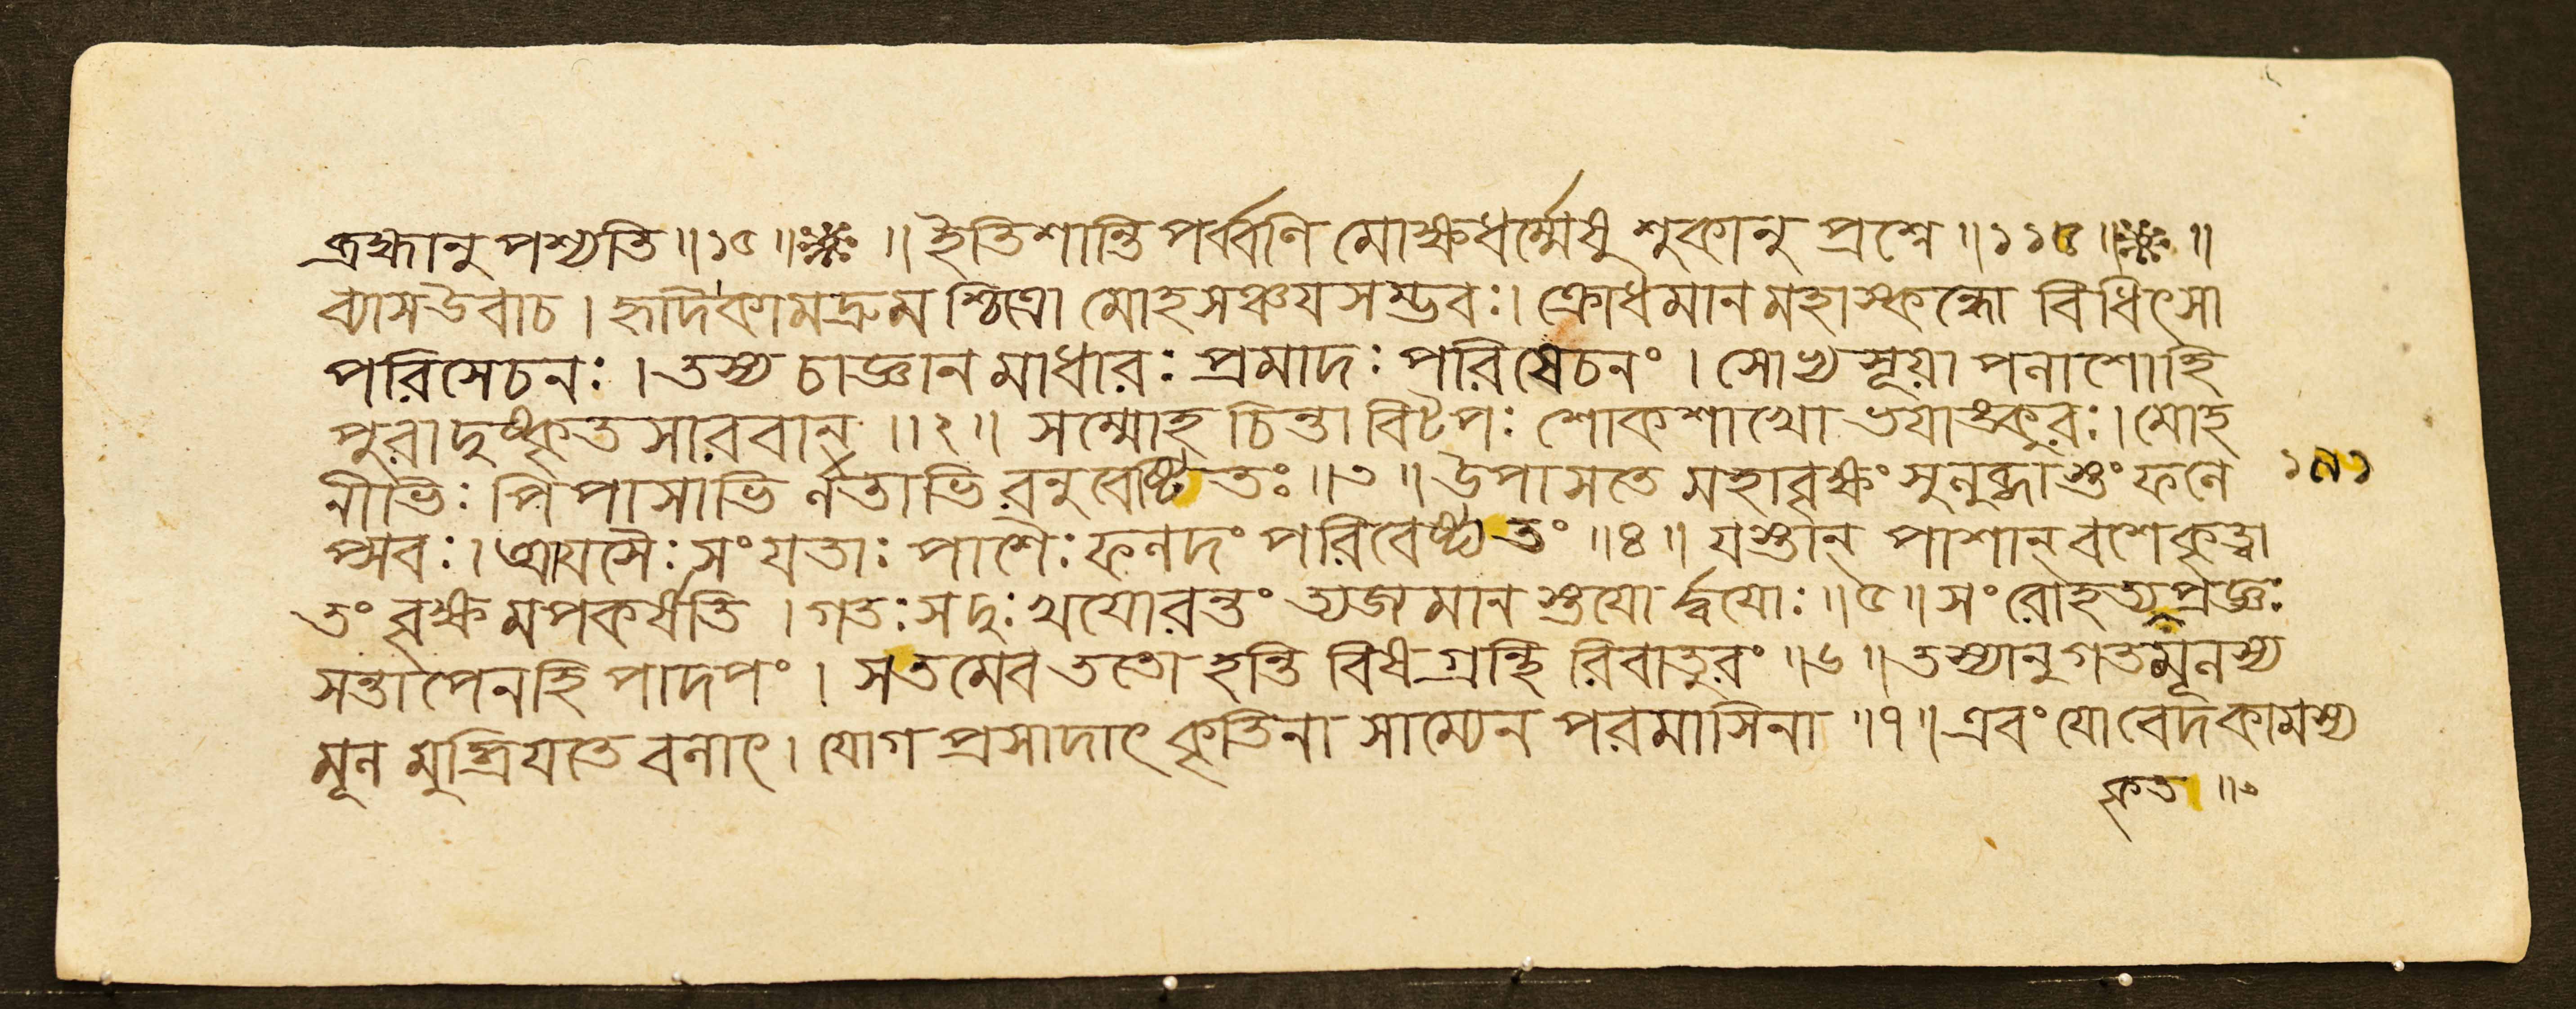 ব্রহ্মানুপশ্যতি ॥ ১৫ ॥ ॥ ইতিশান্তিপর্ব্বণি মোক্ষধর্ম্মেষু শুকানুপ্রশ্নে ॥ ১১৫ ॥ ॥
ব্যাসউবাচ । হৃদিকামদ্রুমশ্চিত্রো মোহসঞ্চযসম্ভবঃ । ক্রোধমানমহাস্কন্ধো বিধিৎসা
পরিসেচনঃ । তস্য চাজ্ঞানমাধারঃ প্রমাদঃ পরিষেচনং । সোভ্যসূয়াপলাশোহি
পুরাদুষ্কৃতসারবান্ ॥ ২ ॥ সম্মোহচিন্তাবিটপঃ শোকশাখো ভযাঙ্কুরঃ । মোহ
নীভিঃ পিপাসাভির্লতাভিরনুবেষ্টিতঃ ॥ ৩ ॥ উপাসতে মহাবৃক্ষং সুলুব্ধাস্তং ফলে ১৭১
প্সবঃ । আযসৈঃ সংযতাঃ পাশৈঃ ফলদং পরিবেষ্ট্য তং ॥ ৪ ॥ যস্তান্ পাশান্ বশেকৃত্বা
তং বৃক্ষমপকর্ষতি । গতঃ সদুঃখযোরন্তং ত্যজমানস্তযোর্দ্বযোঃ ॥ ৫ ॥ সংরোহত্যপ্রজ্ঞঃ
সন্তাপেনহি পাদপং । সতমেব ততো হন্তি বিষগ্রন্থিরিবাতুরং ॥ ৬ ॥ তস্যানুগতমূলস্য
মূলমুদ্ধ্রিযতে বলাৎ । যোগপ্রসাদাৎ কৃতিনা সাম্যেন পরমাসিনা ॥ ৭ ॥ এবং যোবেদকামস্য
কৃত ॥